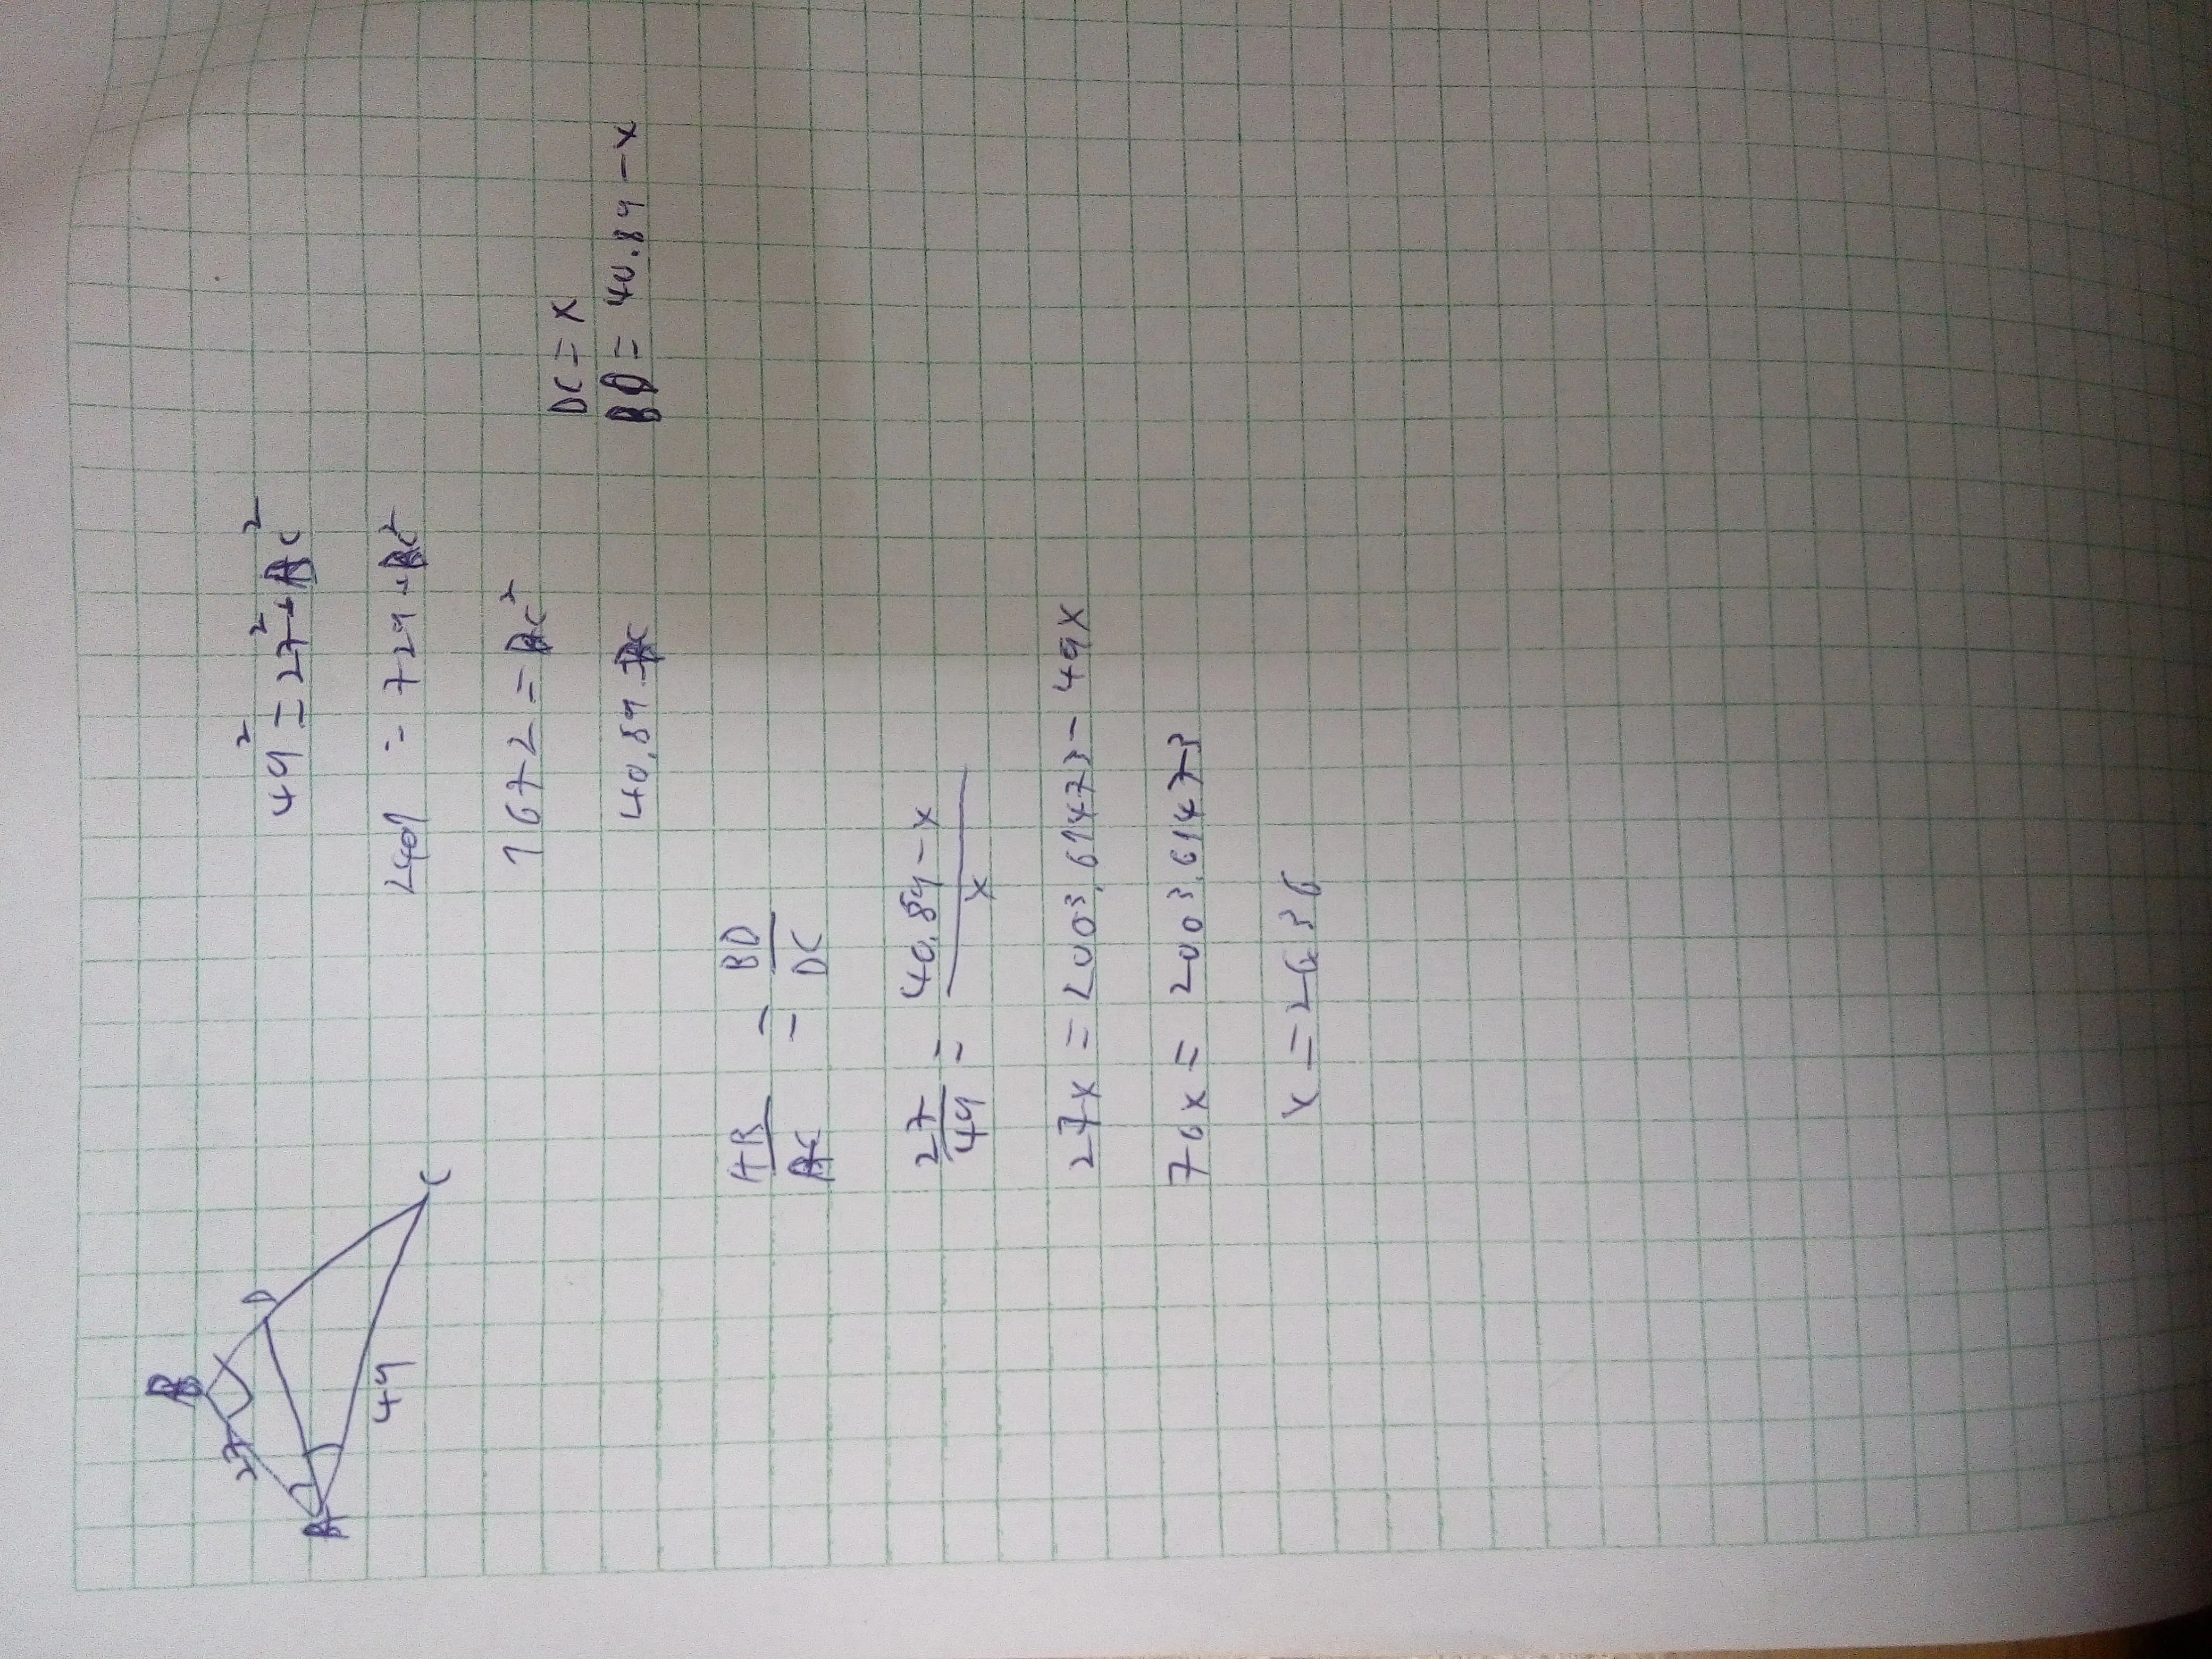 B
D
27
A
C
49
49² = 27² + BC²
2401 = 729 + BC²
1672 = BC²
40.89 = BC
DC = x
BD = 40.89 - x
AB/AC = BD/DC
27/49 = 40.89 - x/x
27x = 2003.61473 - 49x
76x = 2003.61473
x = 26.36